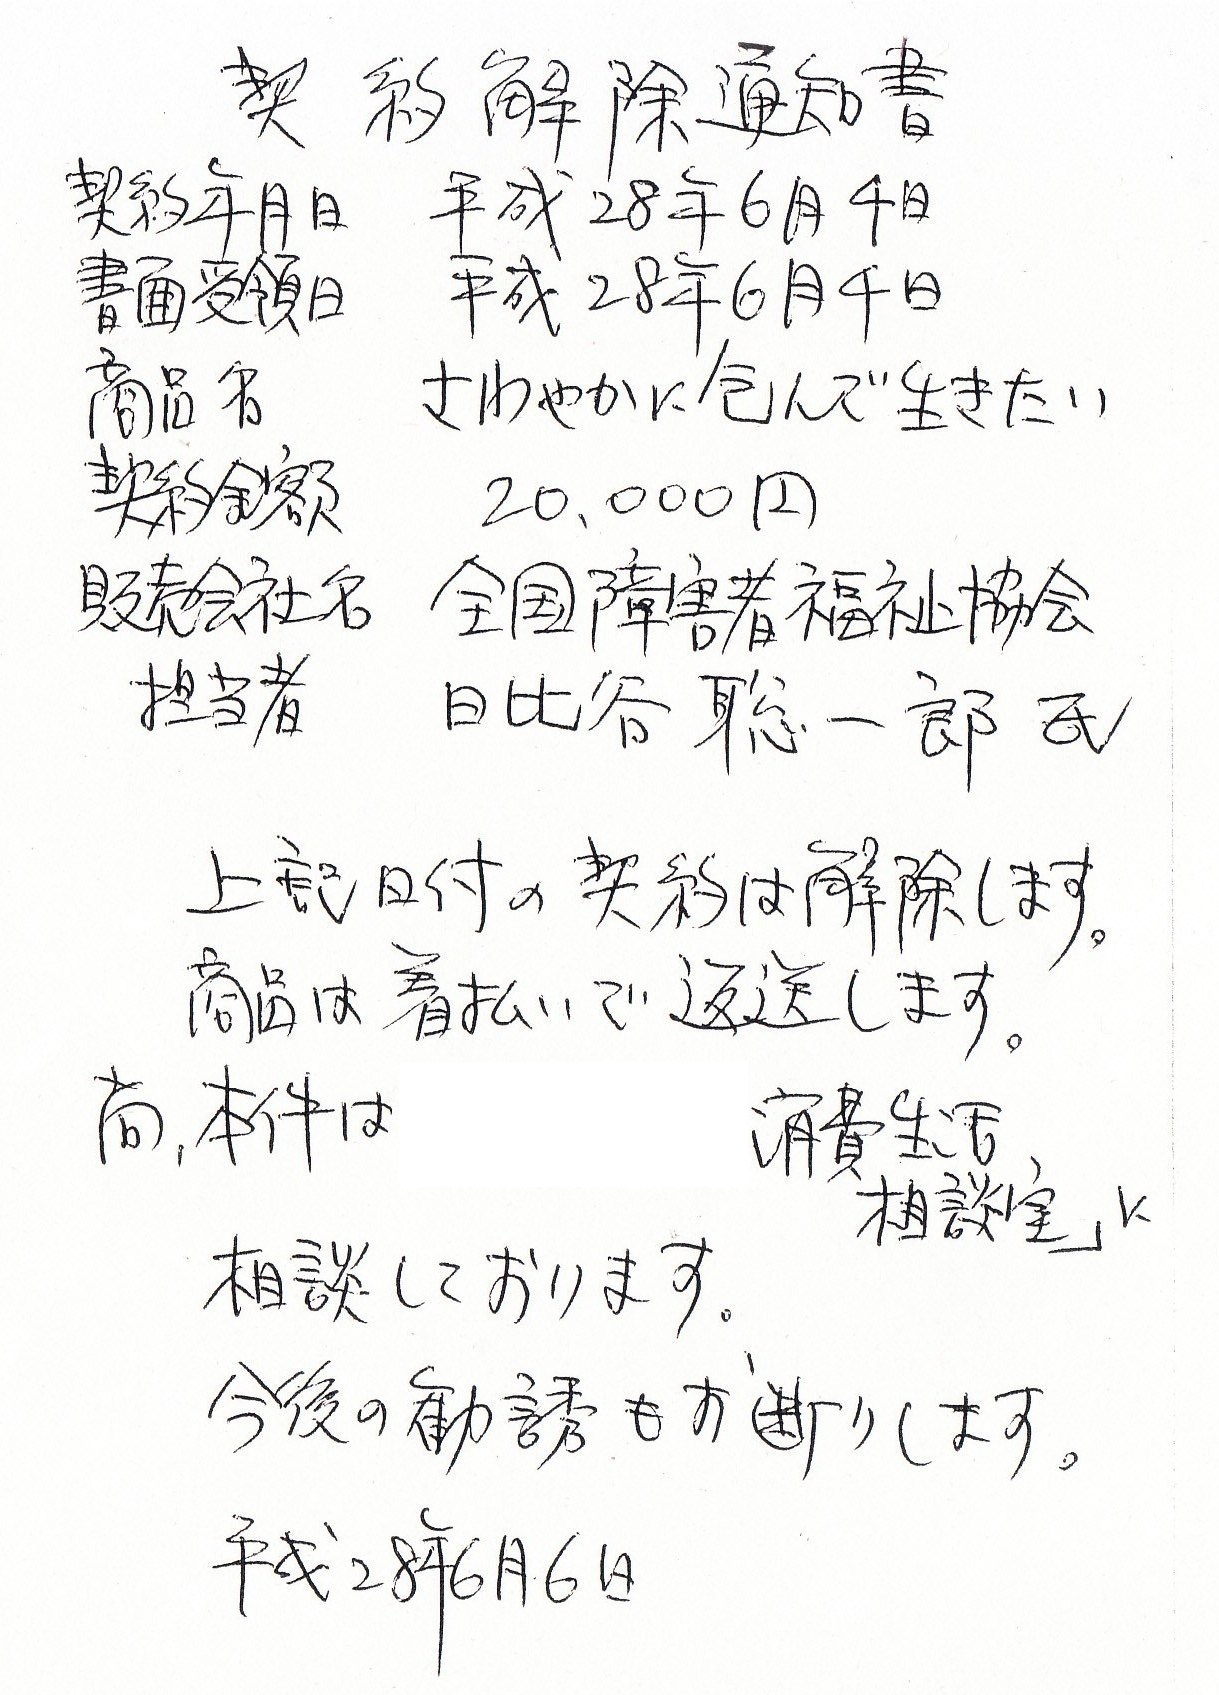 契約解除通知書
契約年月日 平成28年6月4日
書面受領日 平成28年6月4日
商品名 さわやかに包んで生きたい
契約金額 20,000円
販売会社名 全国障害者福祉協会
担当者 日比谷聡一郎氏
上記日付の契約は解除します。
商品は着払いで返送します。
尚,本件は 消費生活
相談室」に
相談しております。
今後の勧誘もお断りします。
平成28年6月6日